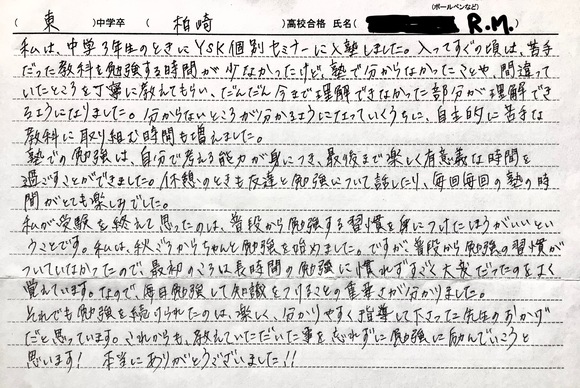 (ボールペンなど)
( 東 )中学卒 ( 柏崎 )高校合格 氏名( R.M. )
私は、中学3年生のときにYSK個別セミナーに入塾しました。入ってすぐの頃は、苦手
だった教科を勉強する時間が少なかったけど、塾で分からなかったことや、間違って
いたところを丁寧に教えてもらい、だんだん今まで理解できなかった部分が理解でき
るようになりました。分からないところが分かるようになっていくうちに、自主的に苦手な
教科に取り組む時間も増えました。
塾での勉強は、自分で考える能力が身につき、最後まで楽しく有意義な時間を
過ごすことができました。休憩のときも友達と勉強について話したり、毎回毎回の塾の時
間がとても楽しみでした。
私が受験を終えて思ったのは、普段から勉強する習慣を身につけたほうがいいとい
うことです。私は、秋ごろからちゃんと勉強を始めました。ですが普段から勉強の習慣が
ついていなかったので、最初のころは長時間の勉強に慣れずすごく大変だったのをよく
覚えています。なので、毎日勉強して知識をつけることの重要さが分かりました。
それでも勉強を続けられたのは、楽しく、分かりやすく指導して下さった先生のおかげ
だと思っています。これからも、教えていただいた事を忘れずに勉強に励んでいこうと
思います! 本当にありがとうございました!!